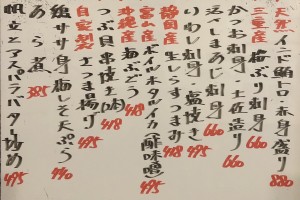 天然 インド鮪トロ・赤身盛り 880
三重産 鰤ぶり刺身 660
かつお刺身 土佐造り 660
活〆しまあじ刺身 660
いわし刺身 塩焼き 495
静岡産 生しらすつまみ 495
富山産 ボイルホタルイカ(酢味噌) 495
沖縄産 海ぶどう 418
つぶ貝串焼き(1本) 418
自家製 さつま揚げ 495
鶏ササ身 梅しそ天ぷら 440
あら煮 385
帆立とアスパラバター炒め 495